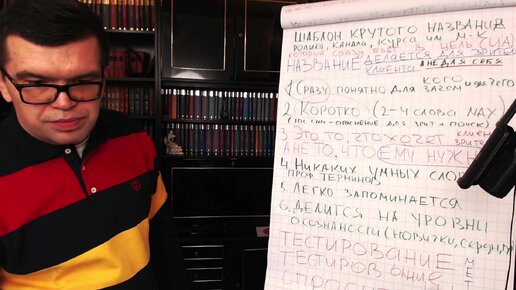 ШАБЛОН КРУТОГО НАЗВАНИЯ
РОЛИКА, КАНАЛА, КУРСА им. М-К
которые сразу бьёт в ЦЕЛЬ (ЦА)
НАЗВАНИЕ ДЕЛАЕТСЯ ДЛЯ ЗРИТЕ
КЛИЕНТА А НЕ ДЛЯ СЕБЯ
1. (СРАЗУ) ПОНЯТНО ДЛЯ КОГО
ЗАЧЕМ и для чего
2. КОРОТКО (2-4 СЛОВА MAX)
ДЛЯ ЗРИТ + ПОИСК
3. ЭТО ТО ЧТО ХОЧЕТ КЛИЕН
ЗРИТЕ
А НЕ ТО, ЧТО ЕМУ НУЖН
4. НИКАКИХ УМНЫХ СЛОВ
ПРОФ ТЕРМИНОВ
5. ЛЕГКО ЗАПОМИНАЕТСЯ
6. ДЕЛИТСЯ НА УРОВНИ
ОСОЗНАНОСТИ (НОВИЧКИ, СЕРЕДН,
ТЕСТИРОВАНИЕ
ТЕСТИРОВАНИЯ
СПРОСИ
МЕТ